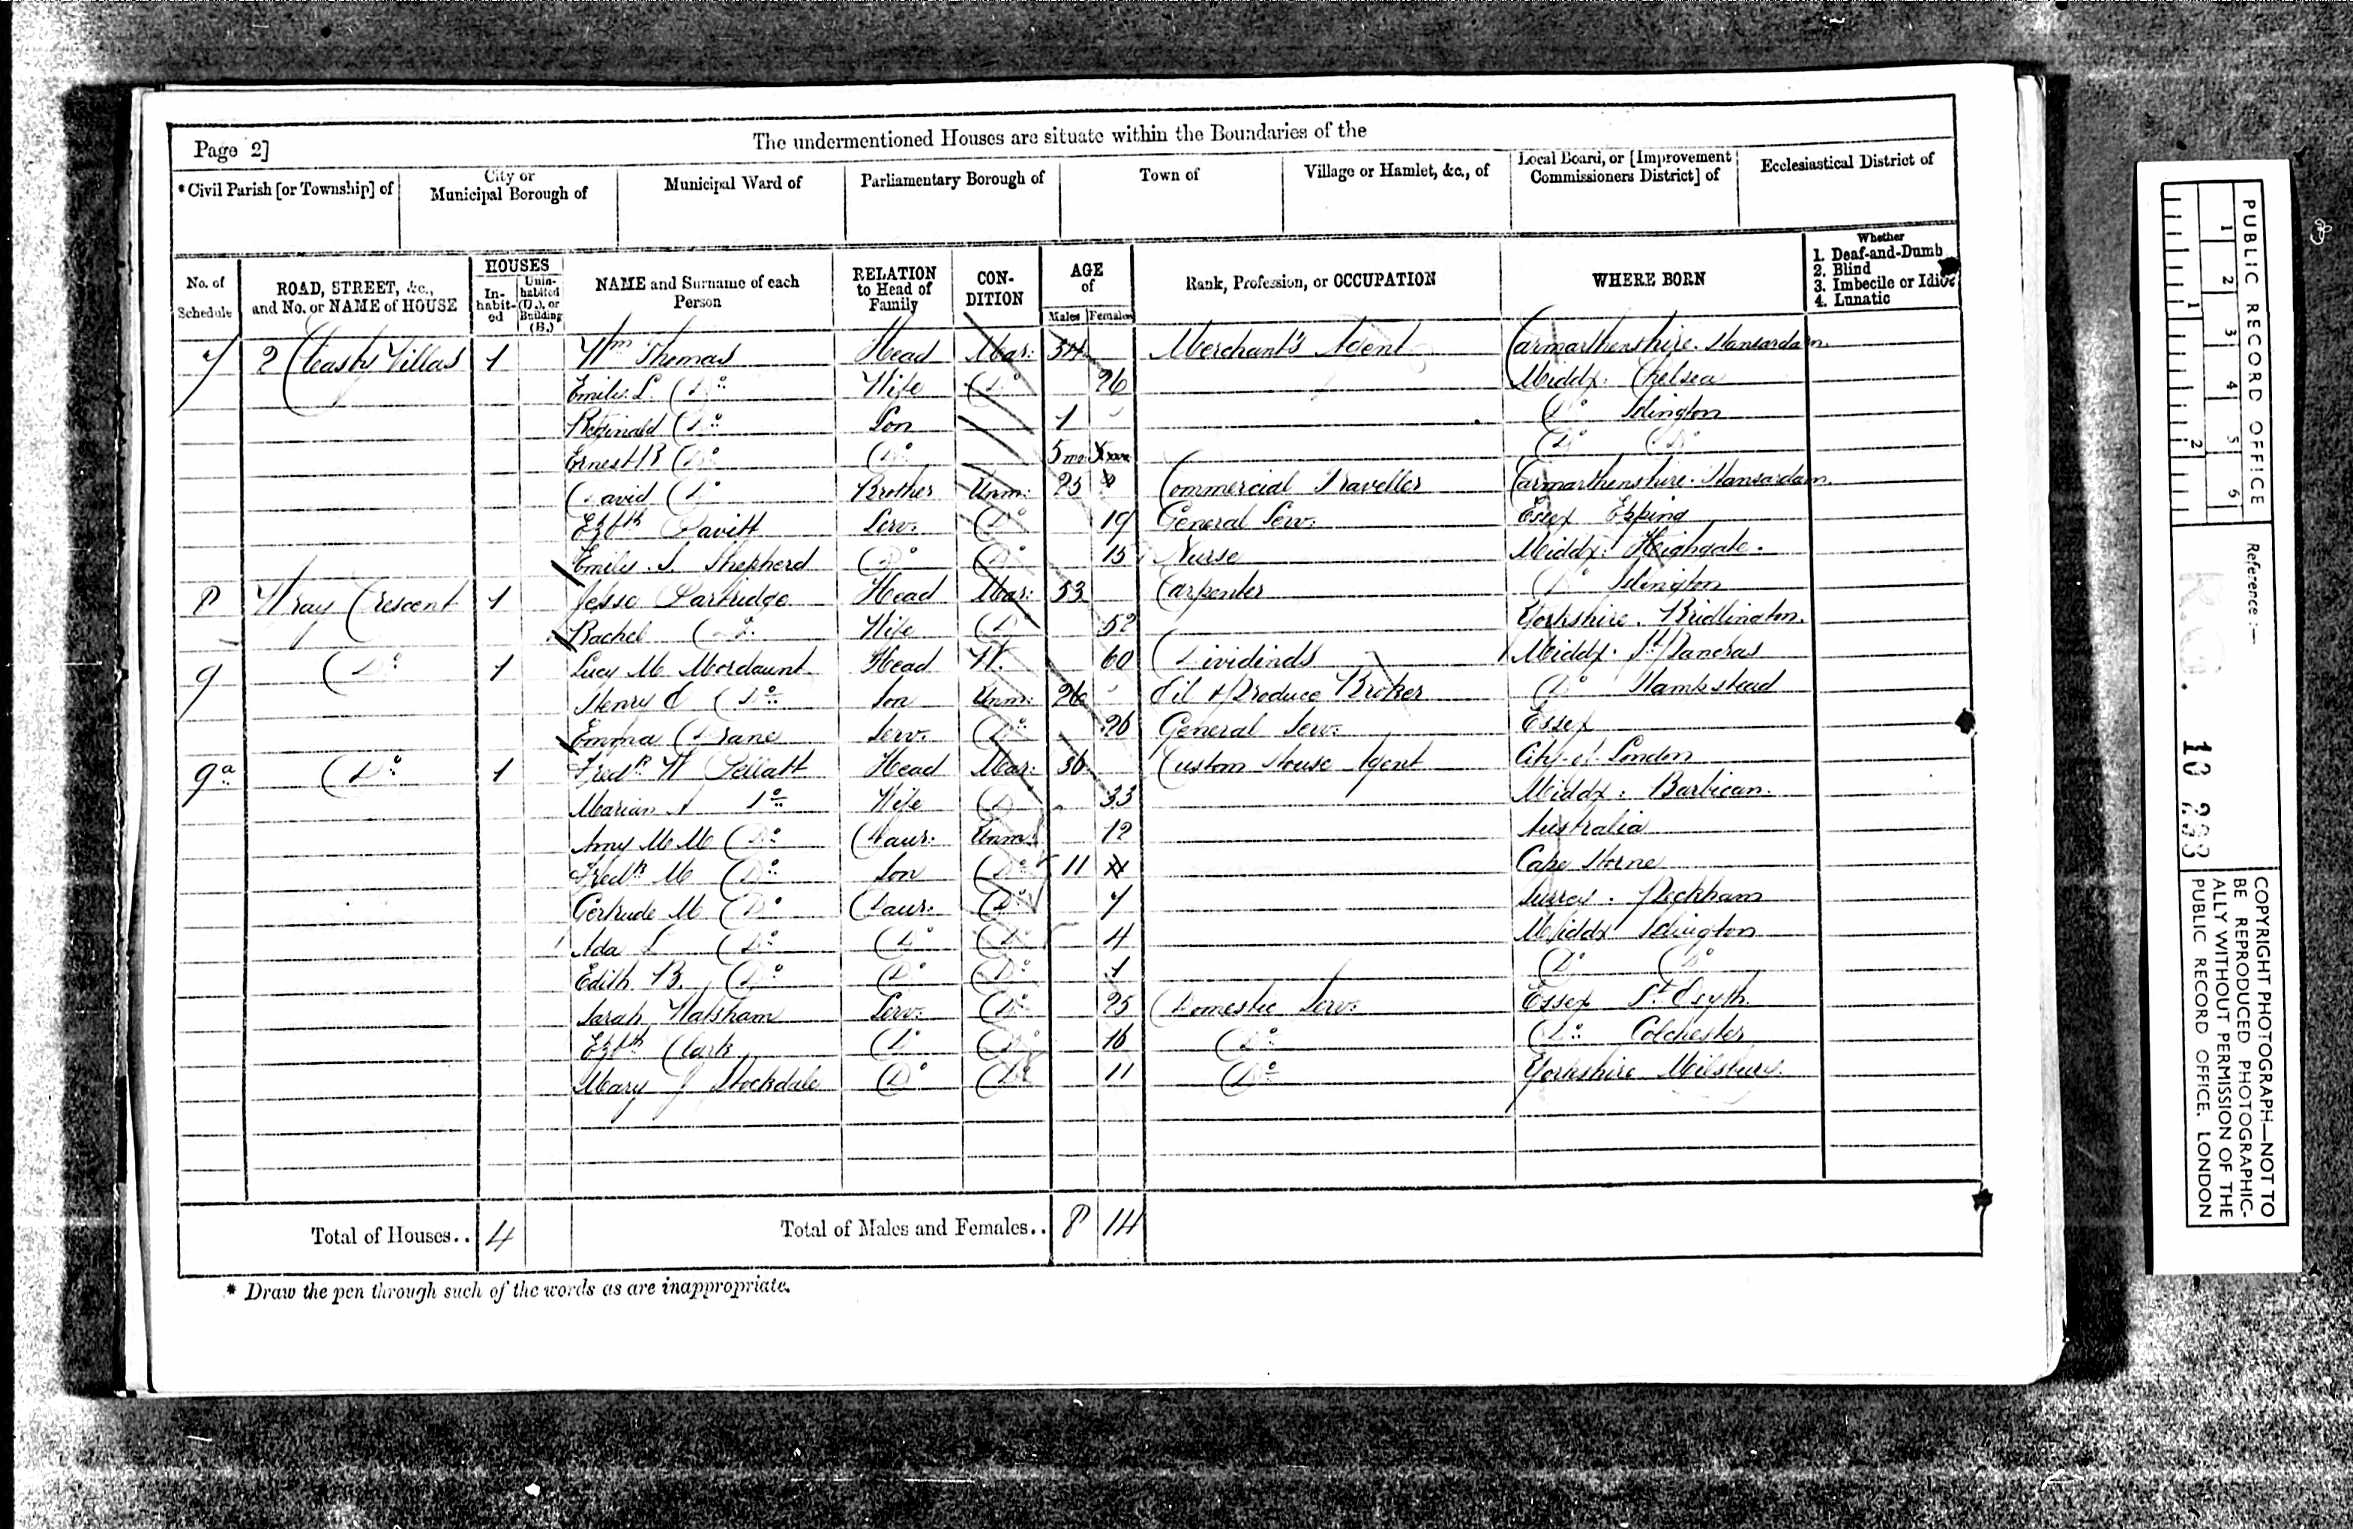 Page 2]
The undermentioned Houses are situate within the Boundaries of the
*Civil Parish [or Township] of
City or Municipal Borough of
Municipal Ward of
Parliamentary Borough of
Town of
Village or Hamlet, &c., of
Local Board, or [Improvement Commissioners District] of
Ecclesiastical District of
No. of Schedule
ROAD, STREET, &c., and No. or NAME of HOUSE
HOUSES
In-habit-ed
Unin-habited (U.), or Building (B.)
NAME and Surname of each Person
RELATION to Head of Family
CON-DITION
AGE of
Males
Females
Rank, Profession, or OCCUPATION
WHERE BORN
Whether
1. Deaf-and-Dumb
2. Blind
3. Imbecile or Idiot
4. Lunatic
7 2 Villas 1 Wm Thomas Head Mar: 34 Merchant's Agent Carmarthenshire.
Emily L. Do Wife Do 26 Middx. Chelsea
Reginald Do Son 1 Do Islington
Ernest B Do Do 5 mo Do Do
David Do Brother Unm: 25 Commercial Traveller Carmarthenshire.
Ezbth Pavitt Serv: Do 19 General Serv: Essex Epping
Emily S. Shepherd Do Do 15 Nurse Middx: Highgate.
8 Wray Crescent 1 Jesse Partridge Head Mar: 53 Carpenter Do Islington
Rachel Do Wife Do 52 Yorkshire. Bridlington.
9 Do 1 Lucy M Mordaunt Head W. 60 Dividinds Middx. St Pancras
Henry Do Son Unm: 26 Oil & Produce Broker Do Hampstead
Emma Crane Serv: Do 26 General Serv: Essex
9a Do 1 Fredk W Pellatt Head Mar: 36 Custom House Agent City of London
Marian A Do Wife Do 33 Middx: Barbican.
Amy M M Do Daur: Unm: 12 Australia
Fredk M Do Son Do 11 Cape Horne
Gertrude M Do Daur: Do 7 Surrey. Peckham
Ada L Do Do Do 4 Middx Islington
Edith B. Do Do Do 1 Do Do
Sarah Walsham Serv: Do 25 Domestic Serv: Essex St Osyth
Ezbth Clark Do Do 16 Do Do Colchester
Mary J Stockdale Do Do 11 Do Yorkshire
Total of Houses.. 4
Total of Males and Females.. 8 14
* Draw the pen through such of the words as are inappropriate.
PUBLIC RECORD OFFICE
1 2 3 4 5 6
1 2
Reference :—
R.G. 10 283
COPYRIGHT PHOTOGRAPH—NOT TO
BE REPRODUCED PHOTOGRAPHIC-
ALLY WITHOUT PERMISSION OF THE
PUBLIC RECORD OFFICE. LONDON